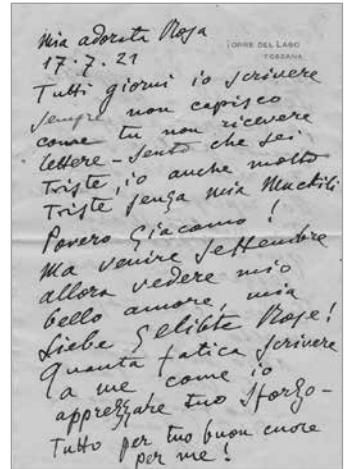 Mia adorata Rosa
TORRE DEL LAGO
TOSCANA
17.7.21
Tutti giorni io scrivere
sempre non capisco
come tu non ricevere
lettere – sento che sei
triste, io anche molto
triste senza mia Muckili
Povero Giacomo!
Ma venire Settembre
allora vedere mio
bello amore, mia
Liebe Gelibte Rose!
Quanta fatica scrivere
a me come io
apprezzare tuo sforzo –
Tutto per tuo buon cuore
per me!